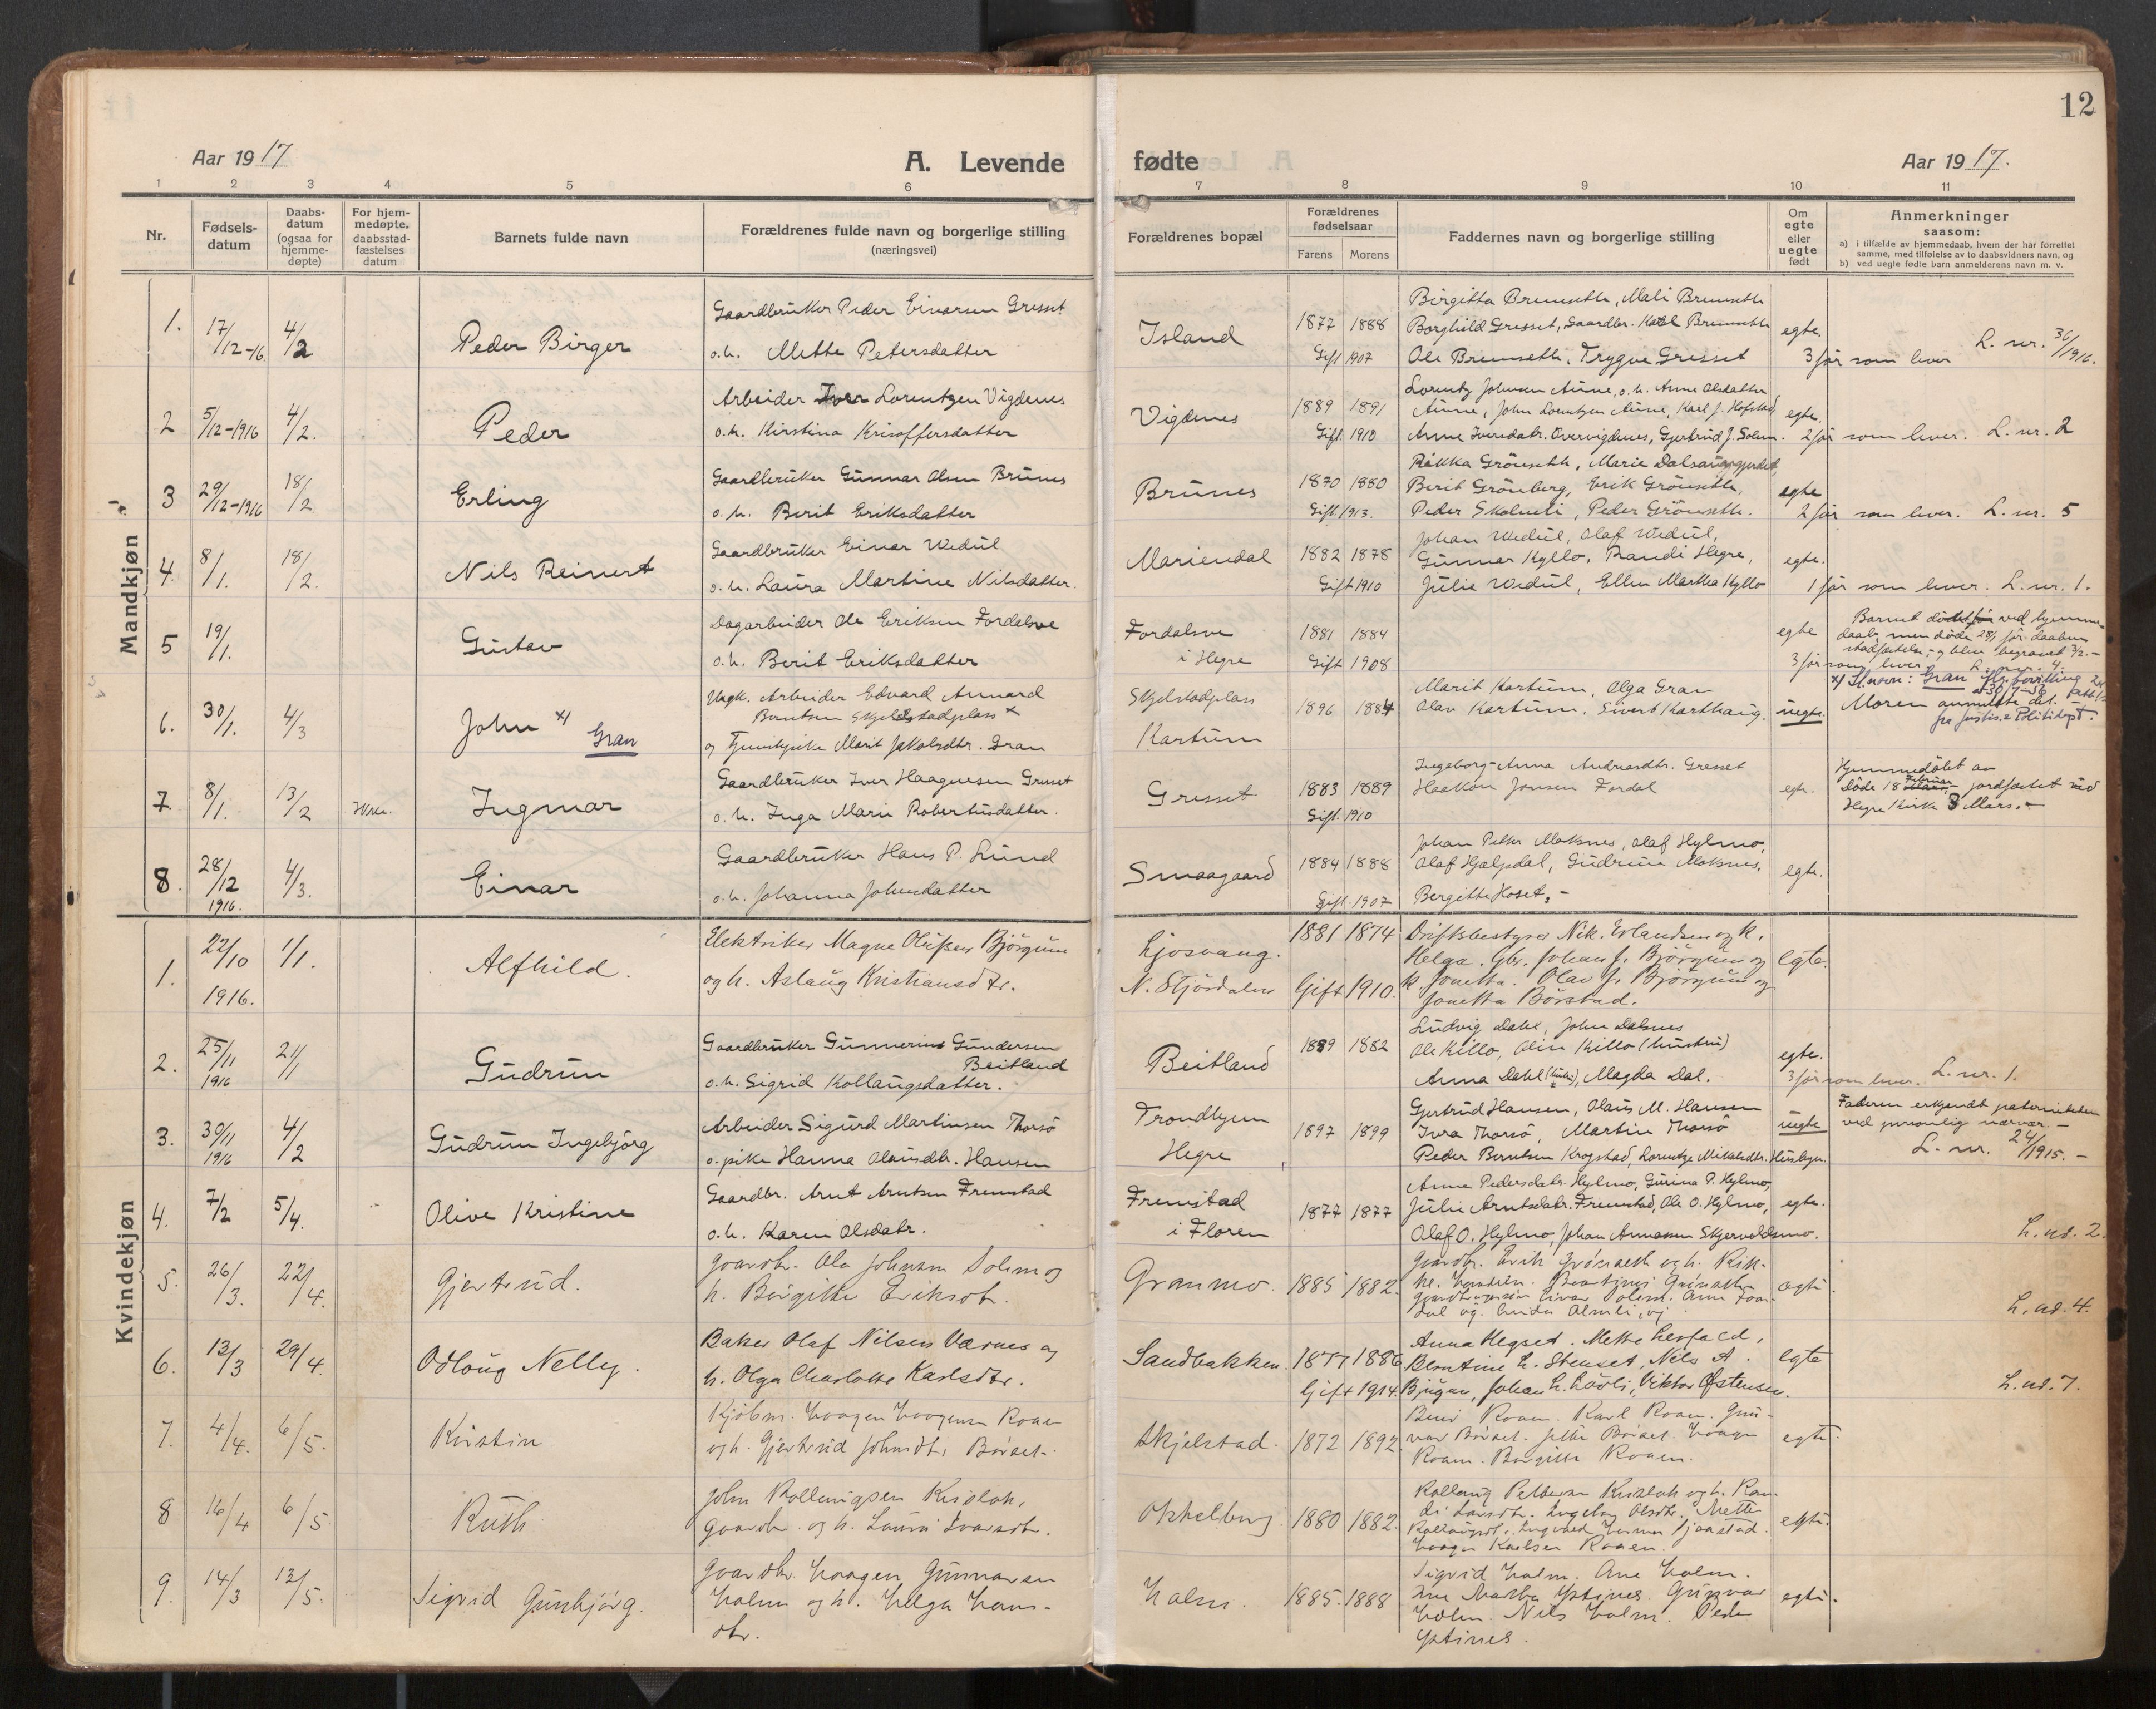 12
Aar 1917
A. Levende
fødte
Aar 1917.
1 2 3 4 5 6 7 8 9 10 11
Nr.
Fødsels-
datum
Daabs-
datum
(ogsaa for
hjemme-
døpte)
For hjem-
medøpte,
daabsstad-
fæstelses
datum
Barnets fulde navn
Forældrenes fulde navn og borgerlige stilling
(næringsvei)
Forældrenes bopæl
Forældrenes
fødselsaar
Farens Morens
Faddernes navn og borgerlige stilling
Om
egte
eller
uegte
født
Anmerkninger
saasom:
a) i tilfælde av hjemmedaab, hvem der har forrettet
samme, med tilføielse av to daabsvidners navn, og
b) ved uegte fødte barn anmelderens navn m. v.
Mandkjøn
1. 17/12-16 4/2 Peder Birger
Gaardbruker Peder Einarsen Gresset
o. h. Mette Petersdatter
Island 1877 1888 Gift 1907
Birgitta Brumseth, Mali Brumseth
Borghild Gresset, Gaardbr. Karl Brumseth
Ole Brumseth, Trygve Gresset
egte.
3 før som lever L. nr. 36/1916.
2 5/12-1916 4/2. Peder
Arbeider Iver Lorentzen Vigdenes
o. h. Kirstina Krisoffersdatter
Vigdenes 1889 1891 Gift 1910
Lorentz Johnsen Aune, o. h. Anne Olsdatter
Aune, John Lorentzen Aune, Karl J. Hofstad,
Anne Iversdatr. Overvigdenes, Gjertrud J. Solem.
egte.
2 før som lever. L. nr. 2
3 29/12-1916 18/2 Erling
Gaardbruker Gunnar Olsen Brunes
o. h. Berit Eriksdatter
Brunes 1870 1880 Gift 1913.
Rikka Grönseth, Marie
Berit Grönberg, Erik Grönseth,
Peder Skolmli, Peder Grönseth.
egte
2 før som lever. L. nr. 5
4. 8/1. 18/2. Nils Reinert
Gaardbruker Einar Wedul
o. h. Laura Martine Nilsdatter.
Mariendal 1882 1878 Gift 1910
Johan Wedul, Olaf Wedul,
Gunnar Kyllo, Randi Hegre,
Julie Wedul, Ellen Martha Kyllo
egte.
1 før som lever. L. nr. 1.
5 19/1. Gustav
Dagarbeider Ole Eriksen Fordalsve
o. h. Berit Eriksdatter
Fordalsve
i Hegre
1881 1884 Gift 1908
egte
Barnet ved hjemme-
daab, men døde 28/1 før daaben
stadfæstedes, og blev begravet 3/2. -
3 før som lever. L. nr. 4.
6. 30/1. 4/3 John x) Gran
Ungk. Arbeider Edvard Annard
Berntsen Skjelstadplass x
og Tjenestpike Marit Jakobsdtr. Gran
Skjelstadplass
Kartum
1896 1884
Marit Kartum, Olga Gran
Olav Kartum, Sivert Karthaug.
uegte.
x) Sl.navn: Gran
Moren anmeldte det. -
fra Justis- & Politidept.
7 8/1. 13/2 Ingmar
Gaardbruker Iver Haagensen Gresset
o. h. Inga Marie Robertusdatter.
Gresset 1883 1889 Gift. 1910
Ingeborg-Anna Andreasdtr. Gresset
Haakon Jonsen Fordal
egte.
Hjemmedøbt av
Døde 18 Februar jordfæstet ved
Hegre kirke 3 Mars. -
8. 28/12 1916. 4/3. Einar
Gaardbruker Hans P. Lund
o. h. Johanna Johnsdatter
Smaagaard 1884 1888 Gift. 1907
Johan Petter Moksnes, Olaf Hylmo,
Olaf Hjelpdal, Gudrun Moksnes,
Bergitte Hoset. -
egte.
Kvindekjøn
1. 22/10 1916. 1/1. Alfhild.
Elektriker Magne Olufsen Björgum
og h. Aslaug Kristiansdtr.
Ljosvang.
N. Stjördalen
1881 1874 Gift 1910.
Driftsbestyrer Nik. Erlandsen og k.
Helga. Gbr. Johan J. Björgum og
k. Jonetta. Olav J. Björgum og
Jonetta Börstad.
egte.
2. 25/11 1916 21/1 Gudrun
Gaardbruker Gunnerius Gundersen
Beitland
o. h. Sigrid Kollaugsdatter.
Beitland 1889 1882
Ludvig Dahl, John Dalsnes
Ole Killo, Olin Killo (hustru)
Anna Dahl (hustru), Magda Dal.
egte.
3 før som lever. L. nr. 1.
3. 30/11 1916 4/2 Gudrun Ingebjörg
Arbeider Sigurd Martinsen Thorsö
o. pike Hanna Olausdtr. Hansen
Trondhjem
Hegre
1897 1899
Gjertrud Hansen, Olaus M. Hansen
Ivra Thorsö, Martin Thorsö
Peder Berntsen Krogstad, Lorentze Mikalsdtr. Husbyn.
uegte
Faderen erkjendt paterniteten
ved personlig nærvær. -
L. nr. 24/1915. -
4. 7/2 5/4. Olive Kristine
Gaardbr. Arnt Arntsen Fremstad
o. h. Karen Olsdatr.
Fremstad
i Floren
1877 1877
Anne Pedersdatr. Hylmo, Gurina P. Hylmo,
Julie Arntsdatr. Fremstad, Ole O. Hylmo,
Olaf O. Hylmo, Johan Annasen Skjervoldsmo.
egte.
L. nr. 2.
5. 26/3. 22/4. Gjertrud.
Gaardbr. Ola Johnsen Solem og
h. Birgitte Eriksdtr.
Granmo 1885 1882.
Gaardbr. Erik Grønseth og h. Rik-
egte.
L. nr. 4.
6. 13/3 29/4. Odloug Nelly.
Baker Olaf Nilsen Værnes og
h. Olga Charlotte Karlsdtr.
Sandbakken. 1877 1886 Gift 1914.
Anna Hegset. Mette
Berntine L. Stenset, Nels A.
Johan L. Lövli, Viktor Östensen.
egte
L. nr. 7.
7. 4/4. 6/5. Kristin
Kjøbm. Haagen Haagensen Roaen
og h. Gjertrud Johnsdtr. Börset.
Skjelstad. 1872 1892.
Berit Roaen. Karl Roaen. Gun-
nar Börset. Haagen
Roaen. Birgitte Roaen.
egte.
8 16/4 6/5 Ruth
John Kollaugsen
gaardbr. og h. Laura Ivarsdtr.
1880 1882.
Haagen Karlsen Roaen.
egte.
9. 14/3 13/5. Sigrid Gunbjörg.
Gaardbr. Haagen Gunnarsen
Holm og h. Helga Hans-
dtr.
Holm. 1885. 1888
Sigrid Holm. Ane Holm.
Ystines. Gunnar
Holm. Nils Holm. Peder
Ystines.
egte.